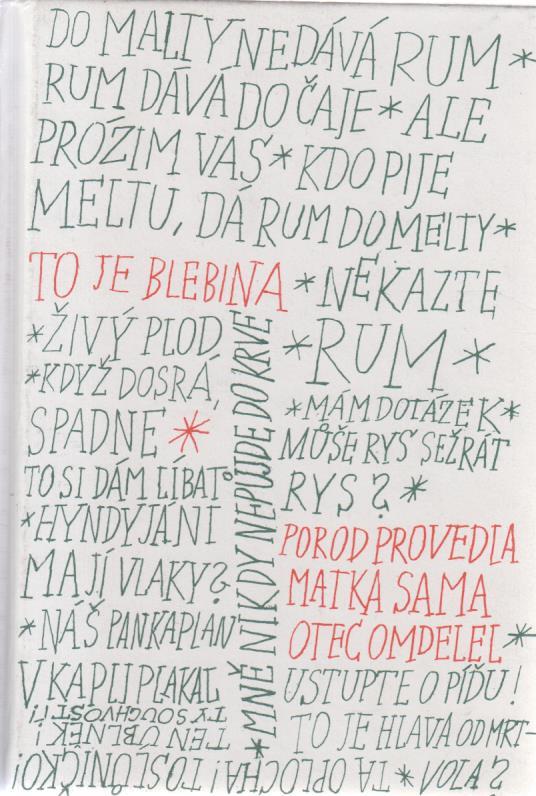 DO MALTY NEDÁVÁ RUM *
RUM DÁVÁ DO ČAJE * ALE
PRÓZIM VAS * KDO PIJE
MELTU, DÁ RUM DO MELTY *
TO JE BLEBINA * NEKAZTE
* RUM *
* ŽIVÝ PLOD
* KDYŽ DOSRÁ,
SPADNE *
TO SI DÁM LÍBAT
* HYNDYJÁNI
MAJÍ VLAKY?
* NÁŠ PANKAPLAN
V KAPLI PLAKAL
* MNĚ NIKDY NEPŮJDE DO KRVE
* MÁM DOTÁZEK *
MŮŠE RYS SEŽRÁT
RYS? *
POROD PROVEDLA
MATKA SAMA
OTEC OMDELEL *
USTUPTE O PÍĎU!
TO JE HLAVA OD MRT-
VOLA? * TA OPLOCHA! TO SLŮNÍČKO!
TEN ÚBLNĚK!
TY SOUCHVOSTI!